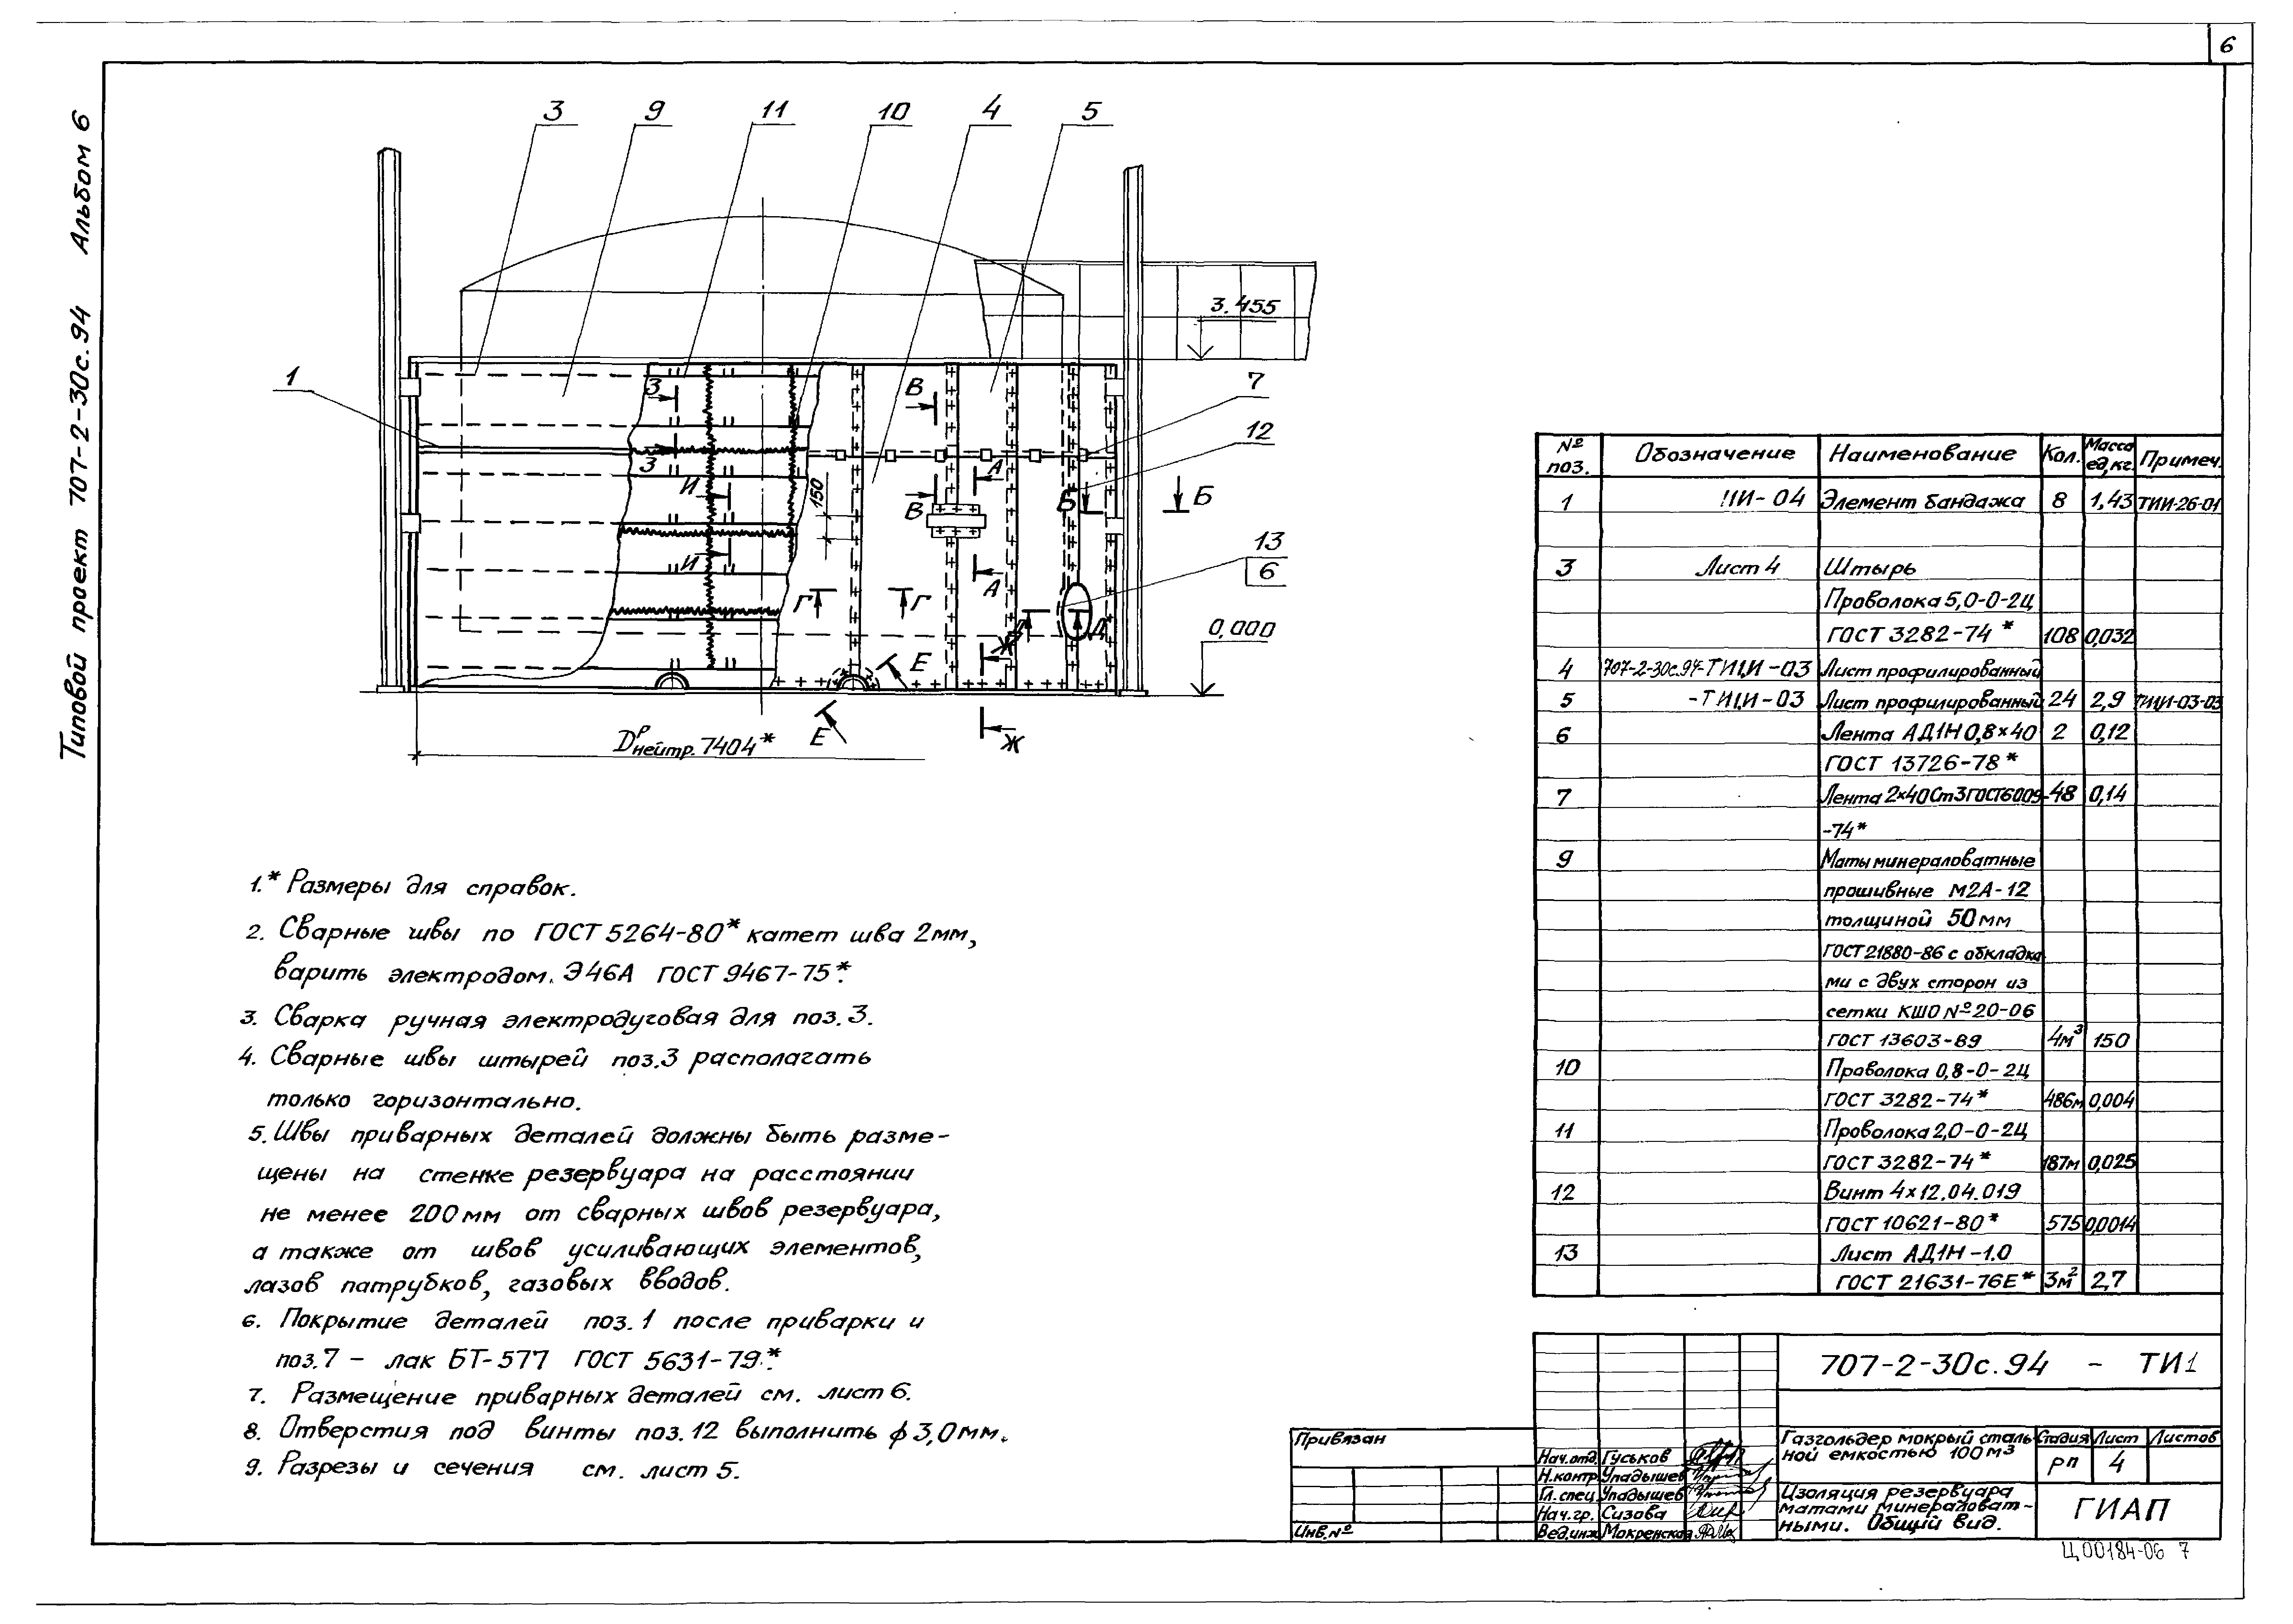 6
Типовой проект 707-2-30с.94 Альбом 6
3 9 11 10 4 5
3.455
1
7
12
З
З
И
И
В
В
А
А
Б
Б
150
13
6
Г
Г
Д
0,000
Е
Е
Ж
Ж
Dᵖнейтр. 7404*
1.* Размеры для справок.
2. Сварные швы по ГОСТ 5264-80* катет шва 2мм,
варить электродом. Э46А ГОСТ 9467-75*.
3. Сварка ручная электродуговая для поз. 3.
4. Сварные швы штырей поз.3 располагать
только горизонтально.
5. Швы приварных деталей должны быть разме-
щены на стенке резервуара на расстоянии
не менее 200мм от сварных швов резервуара,
а также от швов усиливающих элементов,
лазов патрубков, газовых вводов.
6. Покрытие деталей поз. 1 после приварки и
поз.7 - лак БТ-577 ГОСТ 5631-79.*
7. Размещение приварных деталей см. лист 6.
8. Отверстия под винты поз. 12 выполнить ф 3,0мм.
9. Разрезы и сечения см. лист 5.
№ поз. Обозначение Наименование Кол. Масса ед,кг. Примеч.
1 -04 Элемент бандажа 8 1,43 ТИИ-26-01
3 Лист 4 Штырь
Проволока 5,0-0-2Ц
ГОСТ 3282-74* 108 0,032
4 707-2-30с.94-ТИ1,И-03 Лист профилированный
5 -ТИ1,И-03 Лист профилированный 24 2,9 ТИ1,И-03-03
6 Лента АД1Н 0,8×40 2 0,12
ГОСТ 13726-78*
7 Лента 2×40 Ст3 ГОСТ6009- 48 0,14
-74*
9 Маты минераловатные
прошивные М2А-12
толщиной 50мм
ГОСТ 21880-86 с обкладка
ми с двух сторон из
сетки КШО №20-06
ГОСТ 13603-89 4м³ 150
10 Праволока 0,8-0-2Ц
ГОСТ 3282-74* 486м 0,004
11 Проволока 2,0-0-2Ц
ГОСТ 3282-74* 187м 0,025
12 Винт 4×12.04.019
ГОСТ 10621-80* 575 0,0014
13 Лист АД1Н-1.0
ГОСТ 21631-76Е* 3м² 2,7
707-2-30с.94 - ТИ1
Привязан
Инв.№
Нач.отд. Гуськов
Н.контр. Упадышев
Гл.спец. Упадышев
Нач.гр. Сизова
Вед.инж. Мокренская
Газгольдер мокрый сталь
ной емкостью 100м3
Стадия Лист Листов
РП 4
Изоляция резервуара
матами минераловат-
ными. Общий вид.
ГИАП
Ц00184-06 7